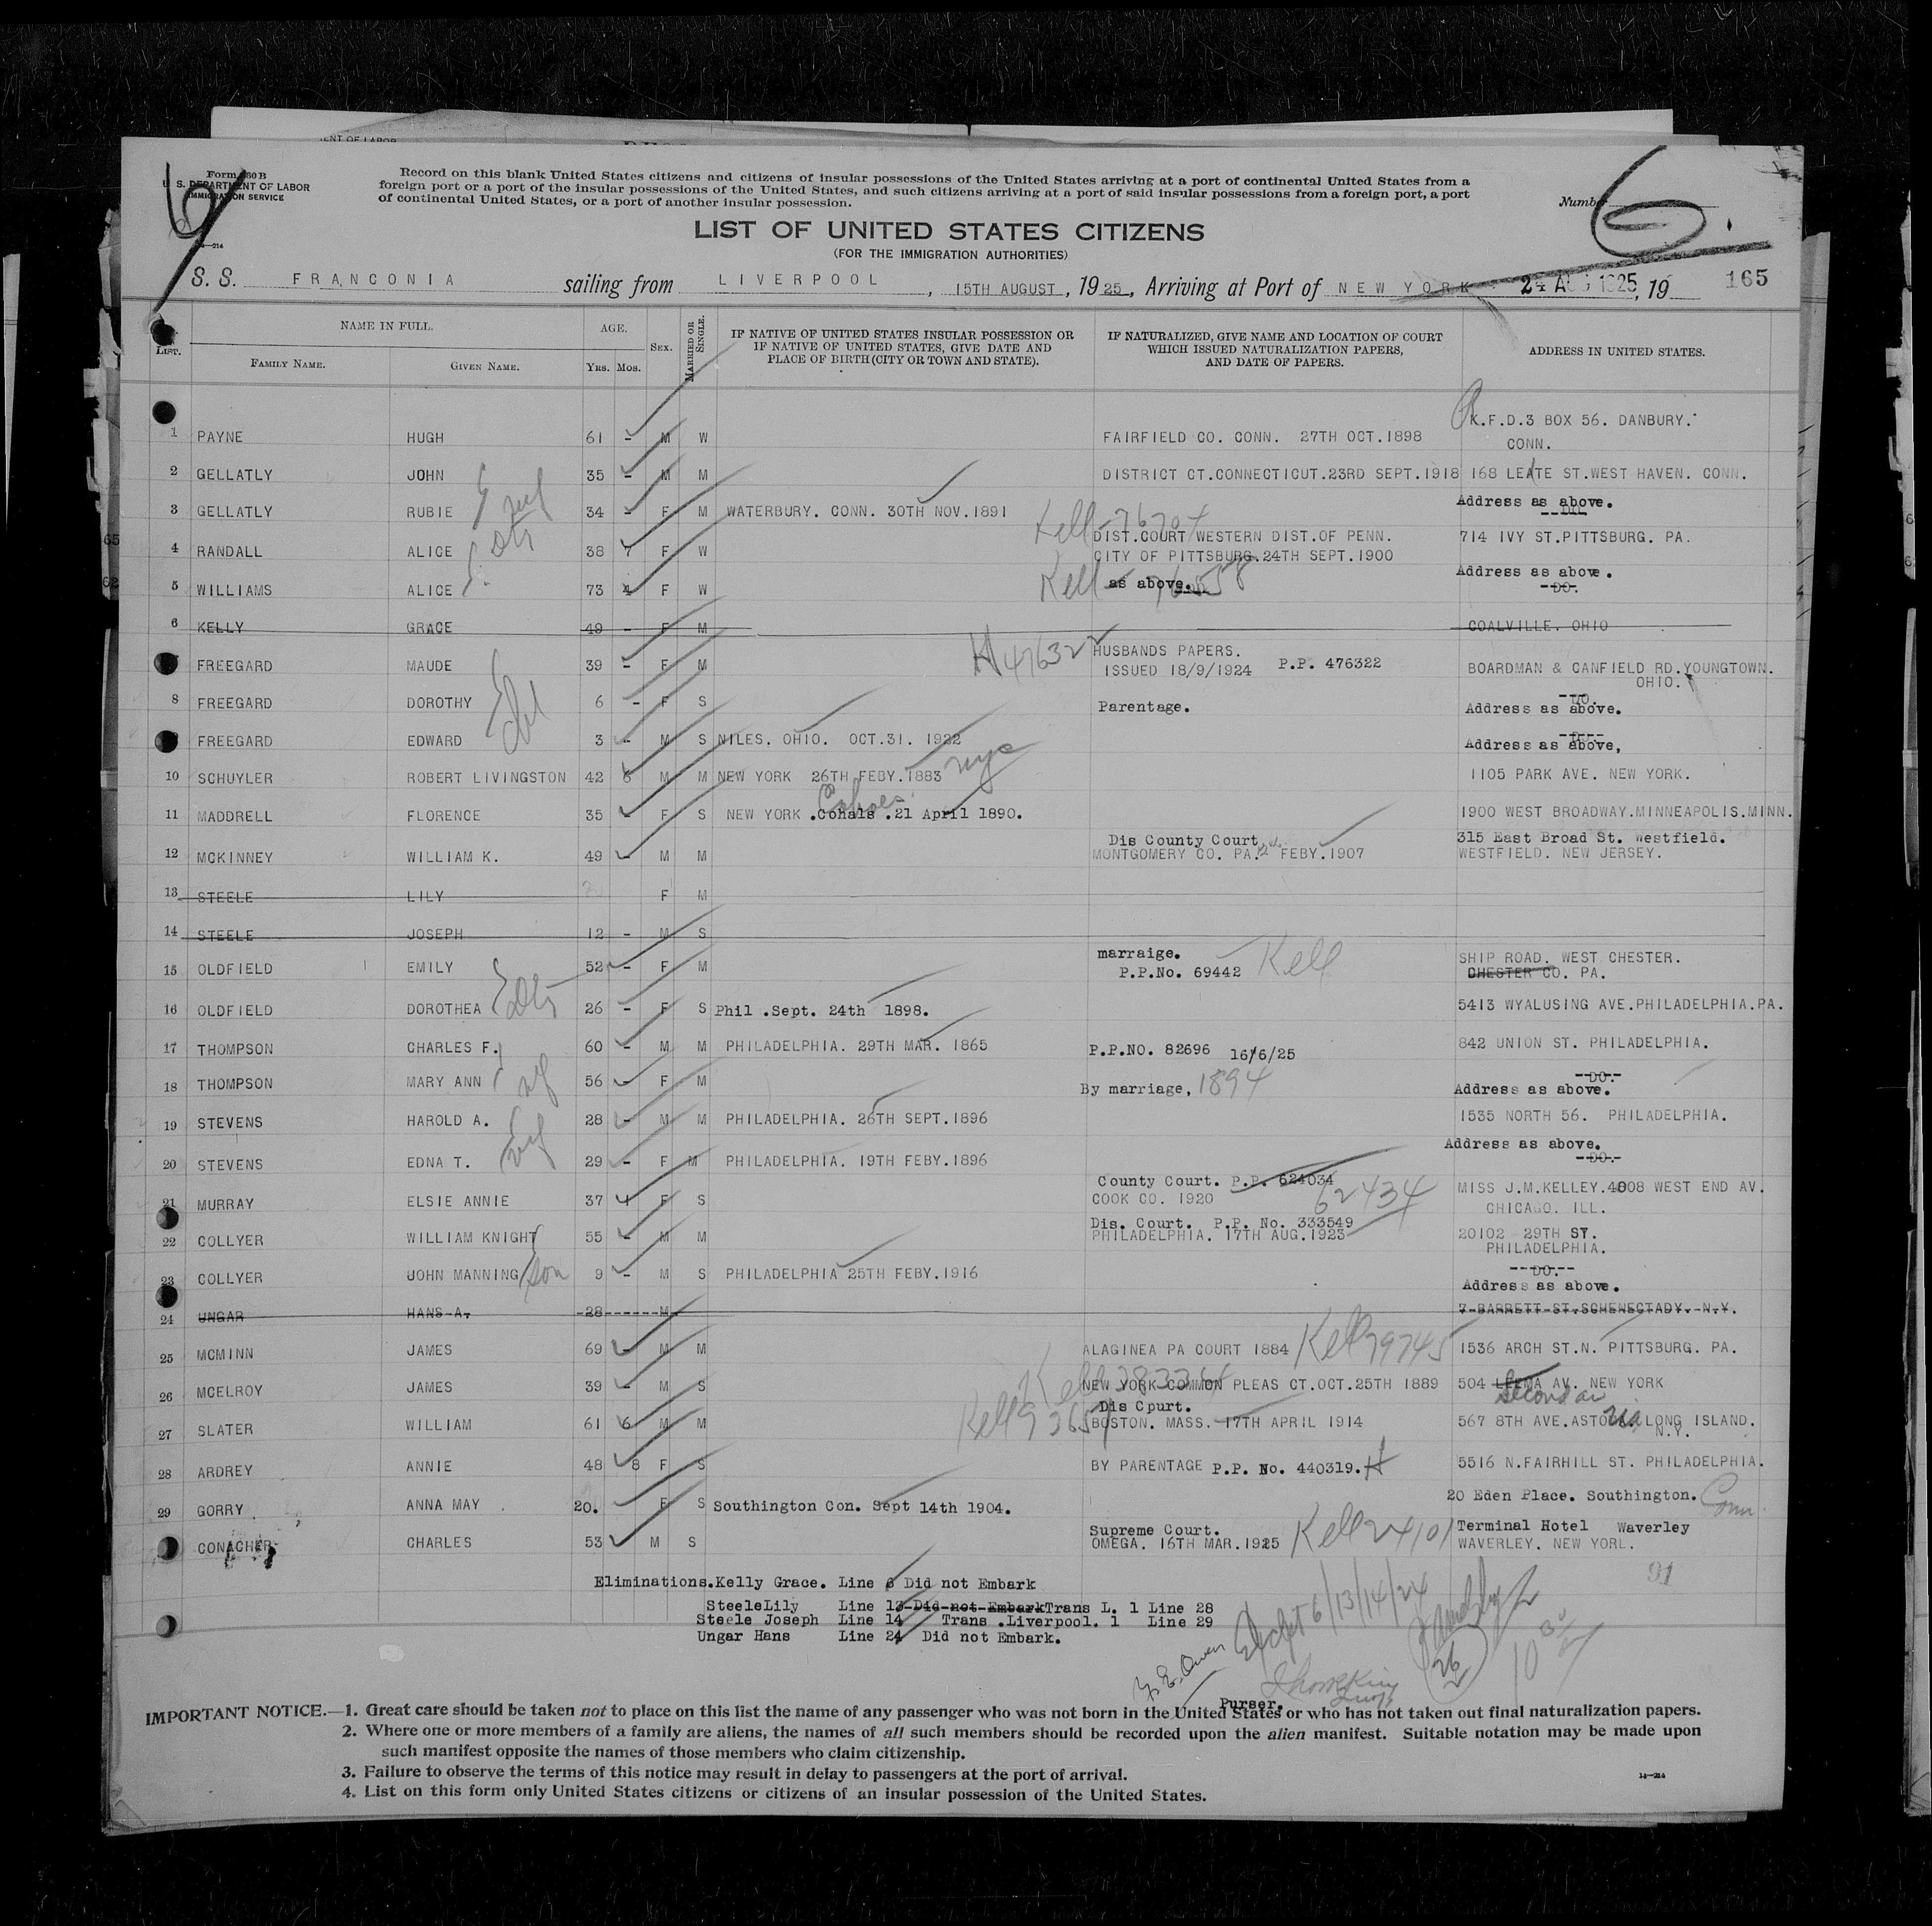 Form 630 B
U. S. DEPARTMENT OF LABOR
IMMIGRATION SERVICE
14—214
Record on this blank United States citizens and citizens of insular possessions of the United States arriving at a port of continental United States from a
foreign port or a port of the insular possessions of the United States, and such citizens arriving at a port of said insular possessions from a foreign port, a port
of continental United States, or a port of another insular possession.
Number
6
LIST OF UNITED STATES CITIZENS
(FOR THE IMMIGRATION AUTHORITIES)
S. S. FRANCONIA sailing from LIVERPOOL, 15TH AUGUST, 1925, Arriving at Port of NEW YORK 24 AUG 1925, 19 165
LIST. NAME IN FULL. AGE. SEX. MARRIED OR SINGLE. IF NATIVE OF UNITED STATES INSULAR POSSESSION OR IF NATIVE OF UNITED STATES, GIVE DATE AND PLACE OF BIRTH (CITY OR TOWN AND STATE). IF NATURALIZED, GIVE NAME AND LOCATION OF COURT WHICH ISSUED NATURALIZATION PAPERS, AND DATE OF PAPERS. ADDRESS IN UNITED STATES.
FAMILY NAME. GIVEN NAME. YRS. MOS.
R.F.D.3 BOX 56. DANBURY.
1 PAYNE HUGH 61 - M W FAIRFIELD CO. CONN. 27TH OCT.1898 CONN.
2 GELLATLY JOHN 35 - M M DISTRICT CT.CONNECTICUT.23RD SEPT.1918 168 LEATE ST.WEST HAVEN. CONN.
wf
3 GELLATLY RUBIE 34 - F M WATERBURY. CONN. 30TH NOV.1891 Address as above. --DO--
Kell-76704
4 RANDALL ALICE 38 7 F W DIST.COURT WESTERN DIST.OF PENN. 714 IVY ST.PITTSBURG. PA.
CITY OF PITTSBURG.24TH SEPT.1900
5 WILLIAMS ALICE 73 4 F W as above. Address as above. --DO.
6 KELLY GRACE 49 - F M COALVILLE. OHIO
H 476322
HUSBANDS PAPERS.
7 FREEGARD MAUDE 39 - F M ISSUED 18/9/1924 P.P. 476322 BOARDMAN & CANFIELD RD.YOUNGTOWN. OHIO.
8 FREEGARD DOROTHY 6 - F S Parentage. -DO. Address as above.
9 FREEGARD EDWARD 3 - M S NILES. OHIO. OCT.31. 1922 -DO-- Address as above,
10 SCHUYLER ROBERT LIVINGSTON 42 6 M M NEW YORK 26TH FEBY.1883 nyc 1105 PARK AVE. NEW YORK.
Cohoes
11 MADDRELL FLORENCE 35 F S NEW YORK .Cohals .21 April 1890. 1900 WEST BROADWAY.MINNEAPOLIS.MINN.
Dis County Court 315 East Broad St. Westfield.
12 MCKINNEY WILLIAM K. 49 - M M MONTGOMERY CO. PA. FEBY.1907 WESTFIELD. NEW JERSEY.
13 STEELE LILY F M
14 STEELE JOSEPH 12 - M S
marraige. Kell SHIP ROAD. WEST CHESTER.
15 OLDFIELD EMILY 52 - F M P.P.No. 69442 CHESTER CO. PA.
16 OLDFIELD DOROTHEA 26 - F S Phil .Sept. 24th 1898. 5413 WYALUSING AVE.PHILADELPHIA.PA.
17 THOMPSON CHARLES F. 60 - M M PHILADELPHIA. 29TH MAR. 1865 P.P.NO. 82696 16/6/25 842 UNION ST. PHILADELPHIA.
wf
18 THOMPSON MARY ANN 56 - F M By marriage, 1894 --DO-- Address as above.
19 STEVENS HAROLD A. 28 - M M PHILADELPHIA. 26TH SEPT.1896 1535 NORTH 56. PHILADELPHIA.
wf
20 STEVENS EDNA T. 29 - F M PHILADELPHIA. 19TH FEBY.1896 Address as above. --DO.-
County Court. P.P. 624034 62434
21 MURRAY ELSIE ANNIE 37 1 F S COOK CO. 1920 MISS J.M.KELLEY.4008 WEST END AV. CHICAGO. ILL.
Dis. Court. P.P. No. 333549
22 COLLYER WILLIAM KNIGHT 55 - M M PHILADELPHIA. 17TH AUG.1923 20102 29TH ST. PHILADELPHIA.
23 COLLYER JOHN MANNING son 9 - M S PHILADELPHIA 25TH FEBY.1916 --DO.-- Address as above.
24 UNGAR HANS A. -28------M 7 BARRETT ST.SCHENECTADY. N.Y.
25 MCMINN JAMES 69 - M M ALAGINEA PA COURT 1884 Kell 79745 1536 ARCH ST.N. PITTSBURG. PA.
26 MCELROY JAMES 39 - M S NEW YORK COMMON PLEAS CT.OCT.25TH 1889 504 AV. NEW YORK
Second av
Dis Cpurt.
27 SLATER WILLIAM 61 6 M M BOSTON. MASS. 17TH APRIL 1914 567 8TH AVE.ASTORIA LONG ISLAND. N.Y.
28 ARDREY ANNIE 48 8 F S BY PARENTAGE P.P. No. 440319. H 5516 N.FAIRHILL ST. PHILADELPHIA.
29 GORRY ANNA MAY 20. F S Southington Con. Sept 14th 1904. 20 Eden Place. Southington. Conn
Supreme Court. Kell 24101 Terminal Hotel Waverley
CONACHER CHARLES 53 M S OMEGA. 16TH MAR.1925 WAVERLEY. NEW YORL.
91
Eliminations.Kelly Grace. Line 6 Did not Embark
SteeleLily Line 13-Did-not-EmbarkTrans L. 1 Line 28
Steele Joseph Line 14 Trans .Liverpool. 1 Line 29
Ungar Hans Line 24 Did not Embark.
6/13/14/24
26
Purser.
IMPORTANT NOTICE.—1. Great care should be taken not to place on this list the name of any passenger who was not born in the United States or who has not taken out final naturalization papers.
2. Where one or more members of a family are aliens, the names of all such members should be recorded upon the alien manifest. Suitable notation may be made upon
such manifest opposite the names of those members who claim citizenship.
3. Failure to observe the terms of this notice may result in delay to passengers at the port of arrival.
4. List on this form only United States citizens or citizens of an insular possession of the United States.
14—214